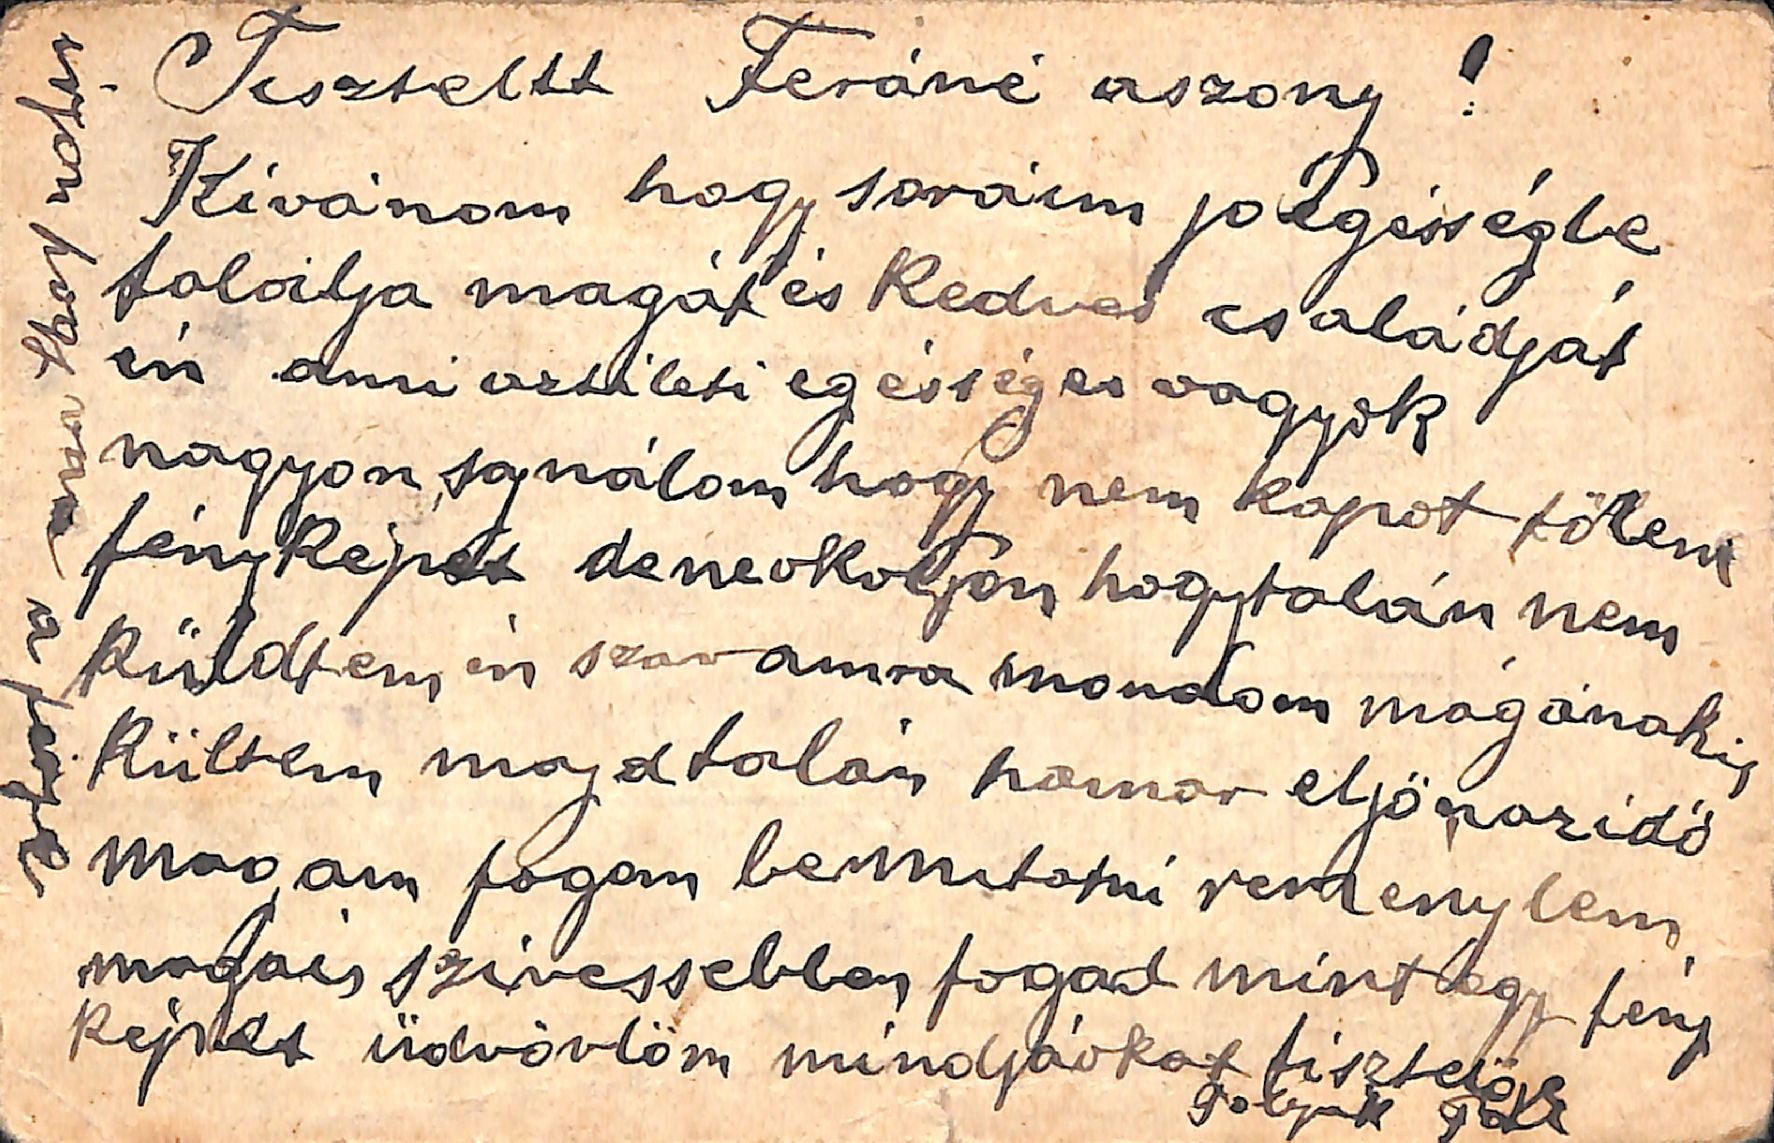 Tiszteltt Feráné aszony!
Kívánom hogy soraim jo egésségbe
talalja magát és Kedves családját
én ami aztileti egésséges vagyok
nagyon sajnálom hogy nem kapot tölem
fényképet de ne okoljon hogy talán nem
Küldtem én szavamra mondom magának is
Kültem majd talán hamar eljön az idő
magam fogom bemutatni remenylem
maga is szivessebben fogad mint egy fény
Képet üdvövlöm mindjáokat tisztelője
írjon hogy van a férje